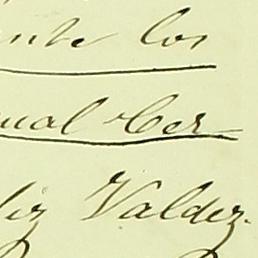 ente los
ual Cer
liz Valdez.